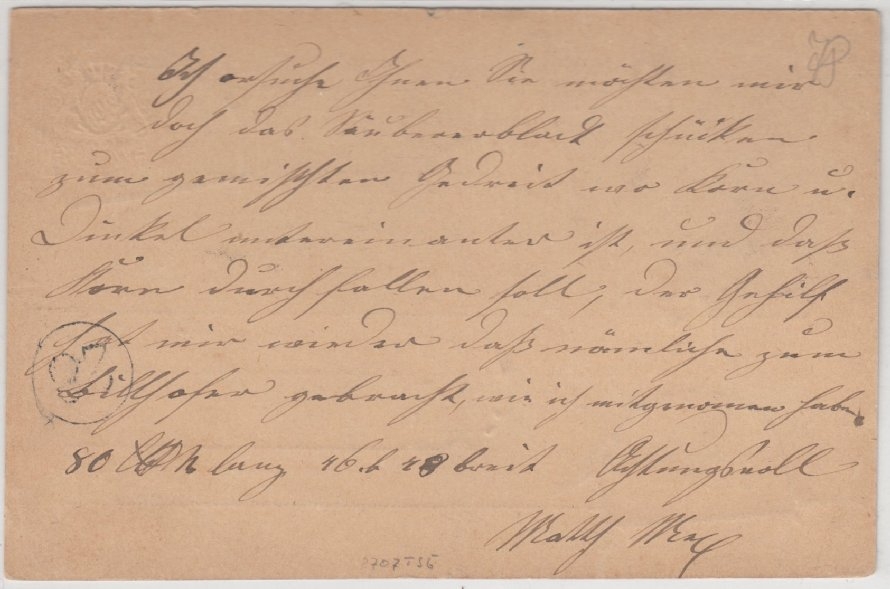 Ich ersuche Ihnen Sie möchten mir
doch das Säubererblact schücken
zum gemischten Gedreit wo Korn u.
Dinkel untereinanter ist, und daß
Korn durchfallen soll, der Gehilf
hat mir wieder daß nämliche zum
gebracht, wie ich mitgenomen habe.
80 lang 46 b 48 breit Achtungsvoll
Matth
2707 TSG
27